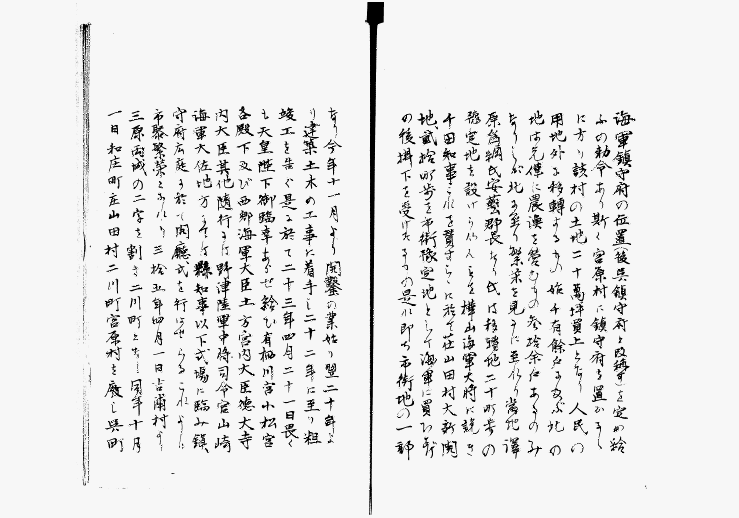 海軍鎮守府の位置(後呉鎮守府と改称す)を定め給
ふの勅令あり斯く宮原村に鎮守府を置かるゝ
に方り該村の土地二十萬坪買上となり人民の
用地外に移轉するもの始千有餘名に及ぶ此の
地は元僅に農漁を営むもの参拾余戸あるのみ
なりしが此に至り繁栄を見るに至れり當他澤
原為綱氏安藝郡長なり氏は移轉他二十町歩の
豫定地を設けられんことを樺山海軍大将に説き
千田知事之れを賛す こゝに於て荘山田村大新開
地貳拾町歩を市街豫定地として海軍に買ひ
の後拂下を受けたるもの是れ即ち市街地の一部
なり今年十一月より開鑿の業始り翌二十年よ
り建築土木の工事に着手し二十二年に至り粗
竣工を告ぐ是に於て二十三年四月二十一日畏く
も天皇陛下御臨幸あらせ給ひ有栖川宮小松宮
各殿下及び西郷海軍大臣土方宮内大臣徳大寺
内大臣其他随行には野津陸軍中将司令官山崎
海軍大佐地方よりは縣知事以下式場に臨み鎮
守府広庭に於て開廳式を行はせらるこれより
市聚繁栄となれり三拾五年四月一日吉浦村より
三原両城の二字を割き二川町となし同年十月
一日和庄町庄山田村二川町宮原村を廃し呉町